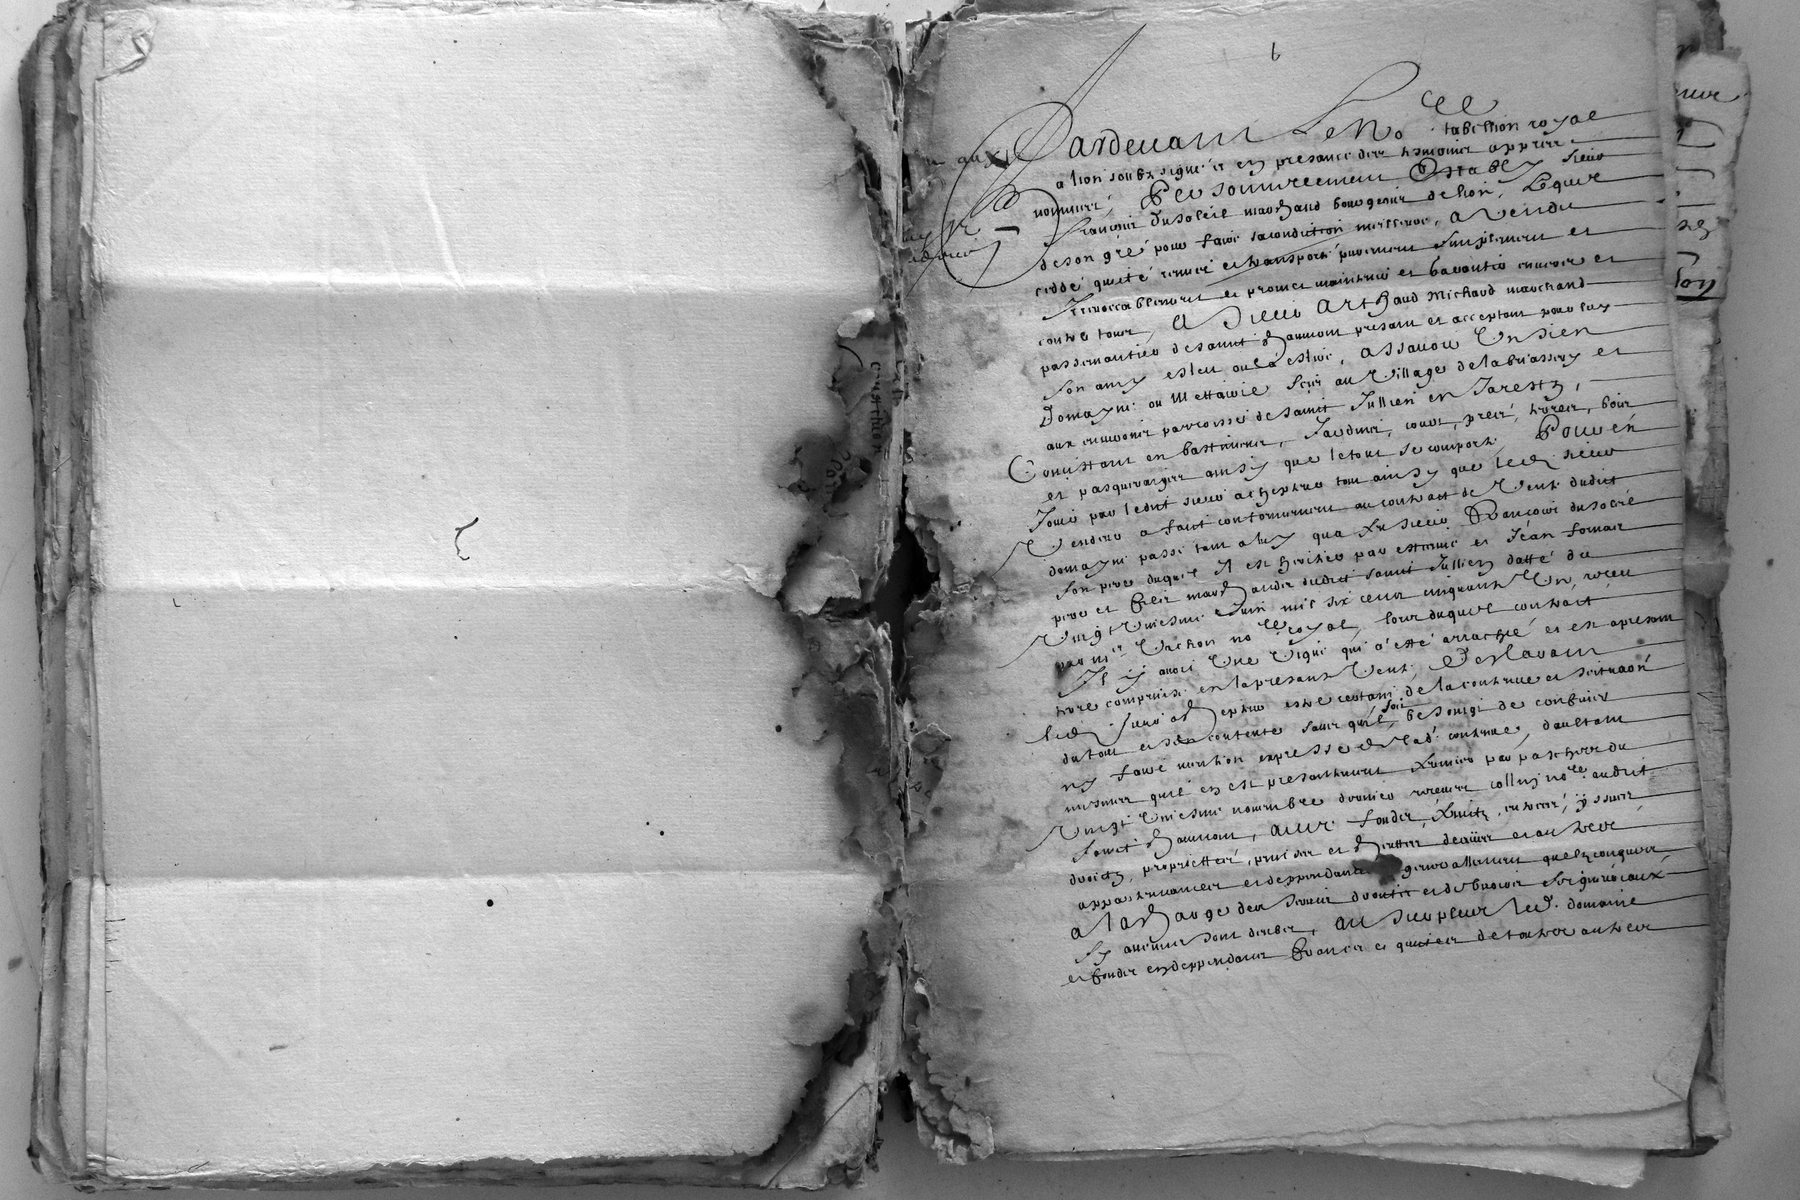 Pardevant Le No.re tabellion royal
a lion soubzsigné et en presance des tesmoins apprez
nommez, Personnellement Estably sieur
François Dusoleil marchand bourgeois de lion, Lequel
de son gré pour faire sa condition meilleure, a Vendu
ceddé quité remis et transporté purement simplement et
Irrevocablement et promet maintenir et garentir envers et
contre tous, A Sieur Arthaud Michaud marchand
passemantier de saint Chaumont presant et acceptant pour luy
son amy esleu ou a eslire, assavoir Un sien
Domayne ou Mettairie scis au Village de la
aux environs parroisse de saint Jullien en Jarestz,
Consistant en bastiments, Jardins, cour, prez, terres, bois
et pasquerages ainsy que le tout se comporte, Pour en
Jouir par ledit sieur achepteur tout ainsy que led. sieur
Vendeur a faict conformement au contract de Vente dudict
domayne passé tant a luy qua feu sieur François dusoleil
son pere duquel Il est heritier par estienne et Jean
pere et filz marchands dudict saint Jullien datté du
Vingt Uniesme Juin mil six cens cinquante Un, receu
par me Vachon no.re royal, lors duquel contract
Il y avoit Une Vigne qui a esté arrachée et est apresant
terre comprinse en la presant Vente, Declarant
led. sieur achepteur estre certain de la contenue et scituaon
du tout et s'en contente sans quil soit besoing de confiner
ny faire mention expresse de lad. contenue, daultant
mesmes quil en est presantement fermier par pasches du
Vingt Uniesme novembre dernier receues collin no.re audit
saint Chaumont, avec fonds, fruitz, entrées, yssues,
droictz, proprietés, prinses et
appartenances et deppendances generallement quelzconques
a la charge des servis droitz et debvoirs seigneuriaux
sy aucuns sont deubz, au surplus led. domaine
et fondz en deppendans francz et quittes de toutes autres